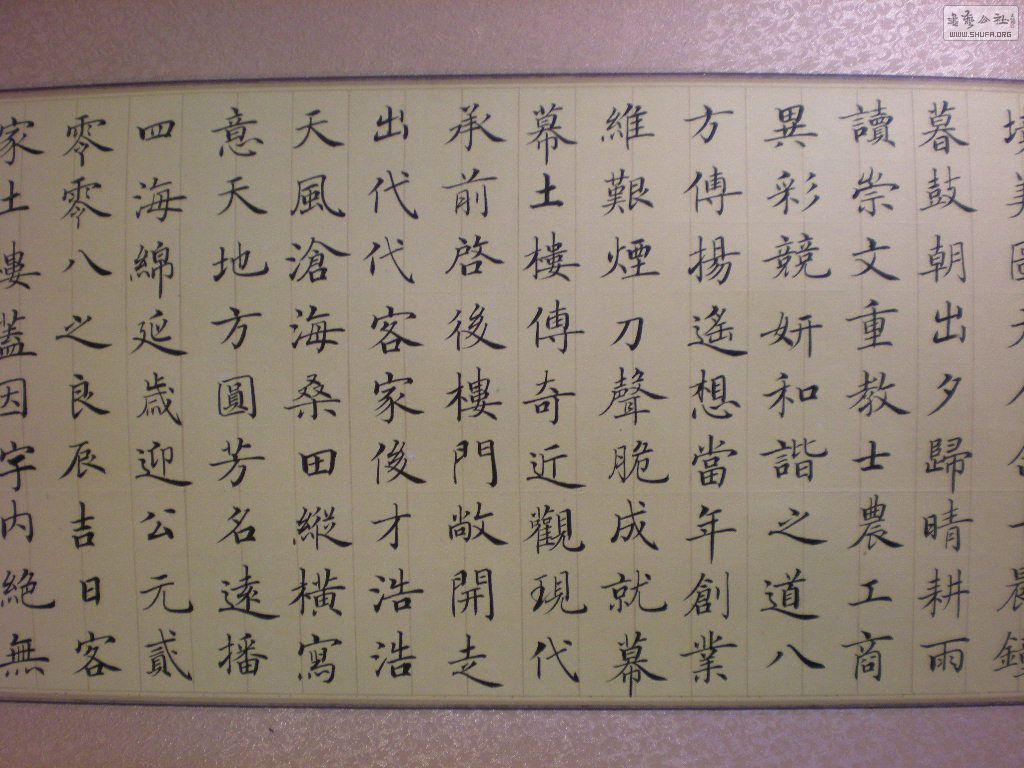 境美圖天人合一晨鐘
暮鼓朝出夕歸晴耕雨
讀崇文重教士農工商
異彩競妍和諧之道八
方傳揚遙想當年創業
維艱煙刀聲脆成就幕
幕土樓傳奇近觀現代
承前啓後樓門敞開走
出代代客家後才浩浩
天風滄海桑田縱橫寫
意天地方圓芳名遠播
四海綿延歲迎公元貳
零零八之良辰吉日客
家土樓蓋因宇内絕無
書藝公社
WWW.SHUFA.ORG